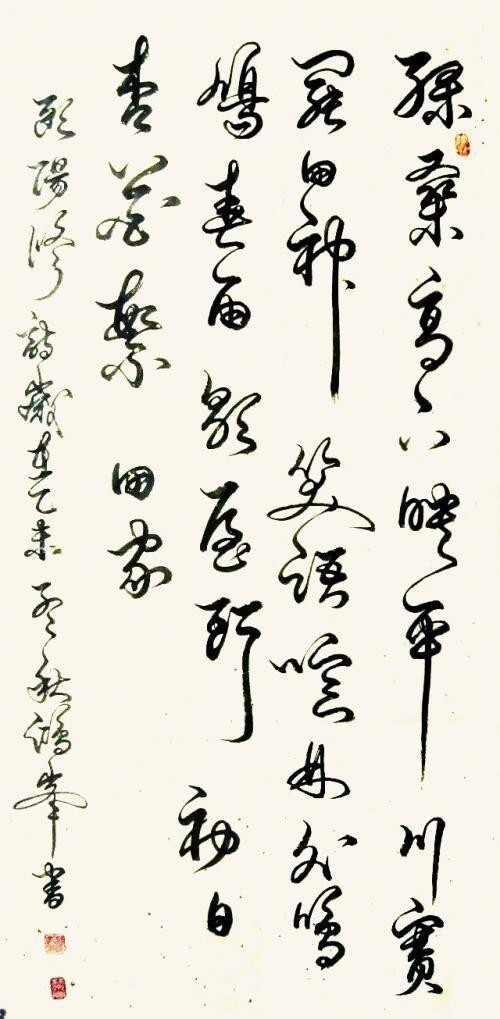 綠桑高下映平川賽
罷田神笑語喧林外鳴
鳩春雨歇屋頭初日
杏花繁 田家
歐陽修詩歲在乙未孟秋鴻峰書